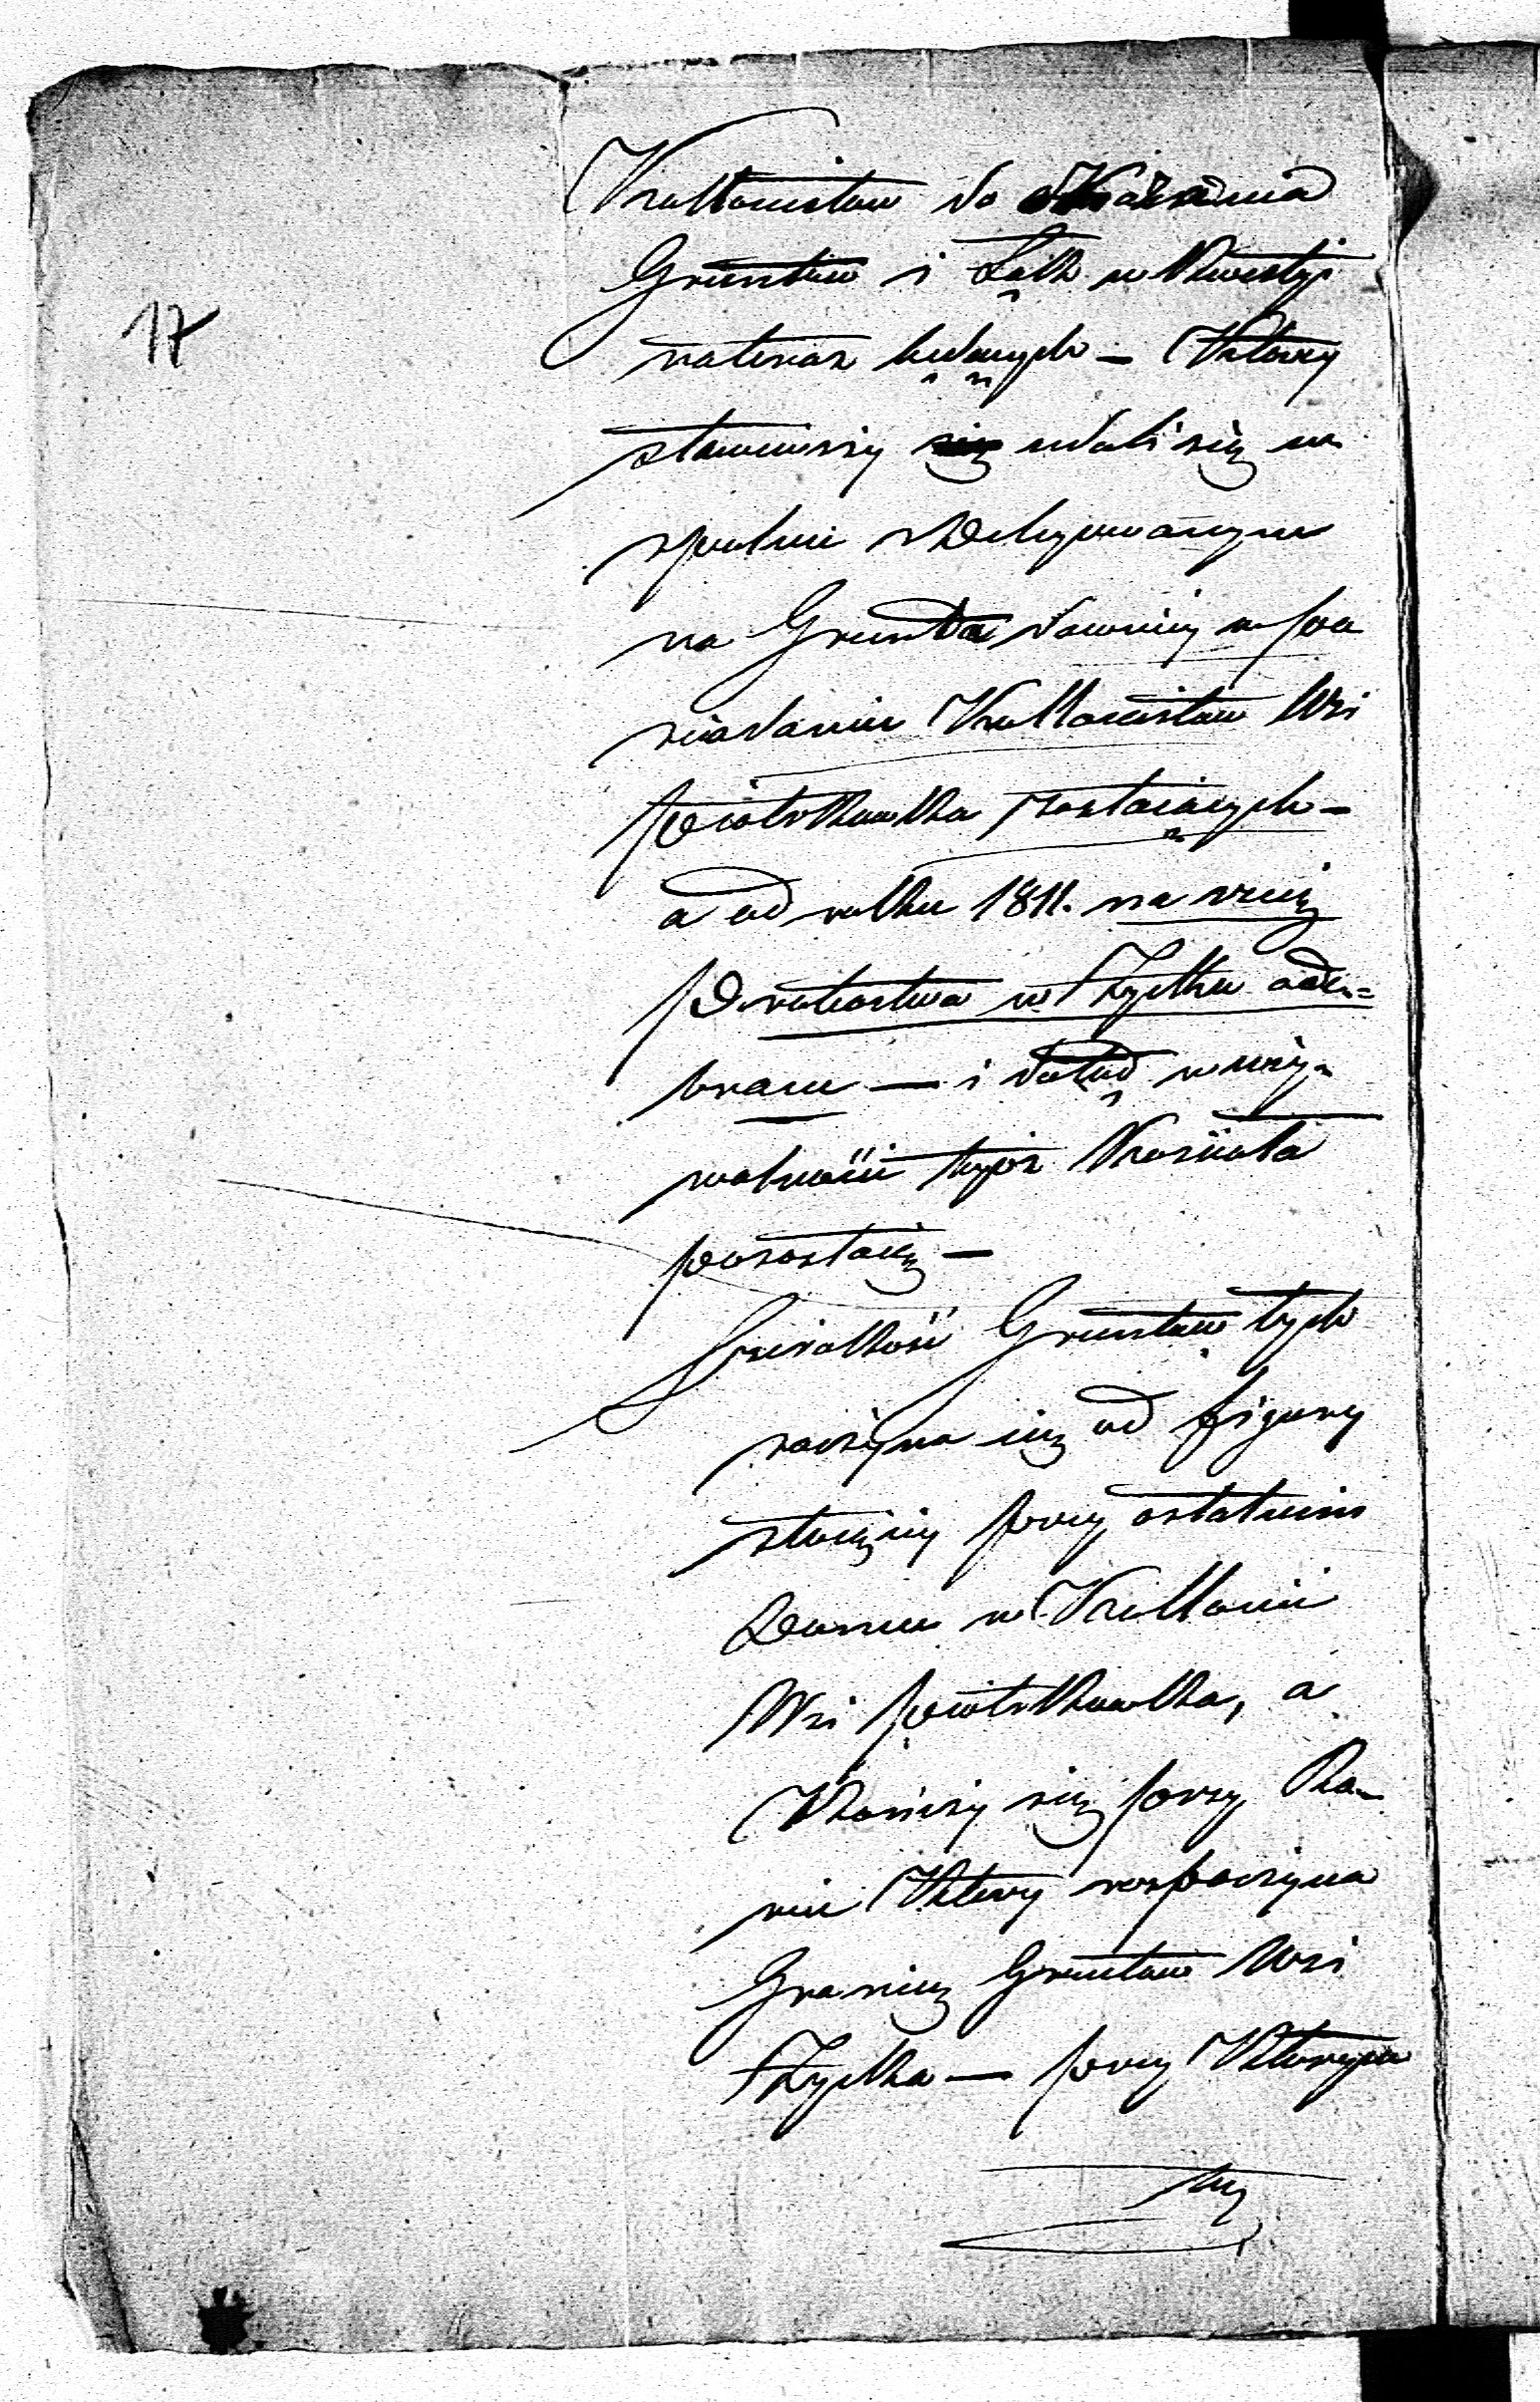 17
Kollonistow do okazania
Gruntow i Łąk w kwestyi
nateraz będących — Ktorzy
stanąwszy udali się w
spolnie z Delegowanym
na Grunta dawniey w po
siadaniu Kollonistow Wsi
Piotrkowka zostaiących —
a od roku 1811. na rzecz
Probostwa w Łysku ode=
brane — i dotąd w uży=
walności tegoż Kościoła
pozostaią —
Szerokość Gruntow tych
zaczyna się od figury
stoiącey przy ostatnim
Domu w Kollonii
Wsi Piotrkowka, a
Kończy się przy Ro=
wie Ktory rozpoczyna
Granicę Gruntow Wsi
Łyska — przy Ktorym